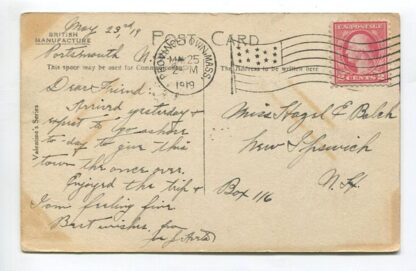 May 23rd/19
BRITISH
MANUFACTURE
POST CARD
Portsmouth N.
This space may be used for Communication
The Address to be written here
PROVINCETOWN, MASS.
MAY 25
2 PM
1919
U.S. POSTAGE
2 CENTS 2
Valentine's Series
Dear Friend:
Arrived yesterday &
expect to go ashore
to day to give this
town the once over.
Enjoyed the trip &
I am feeling fine
Best wishes, from
Miss Hazel E Balch
New Ipswich
N.H.
Box 116